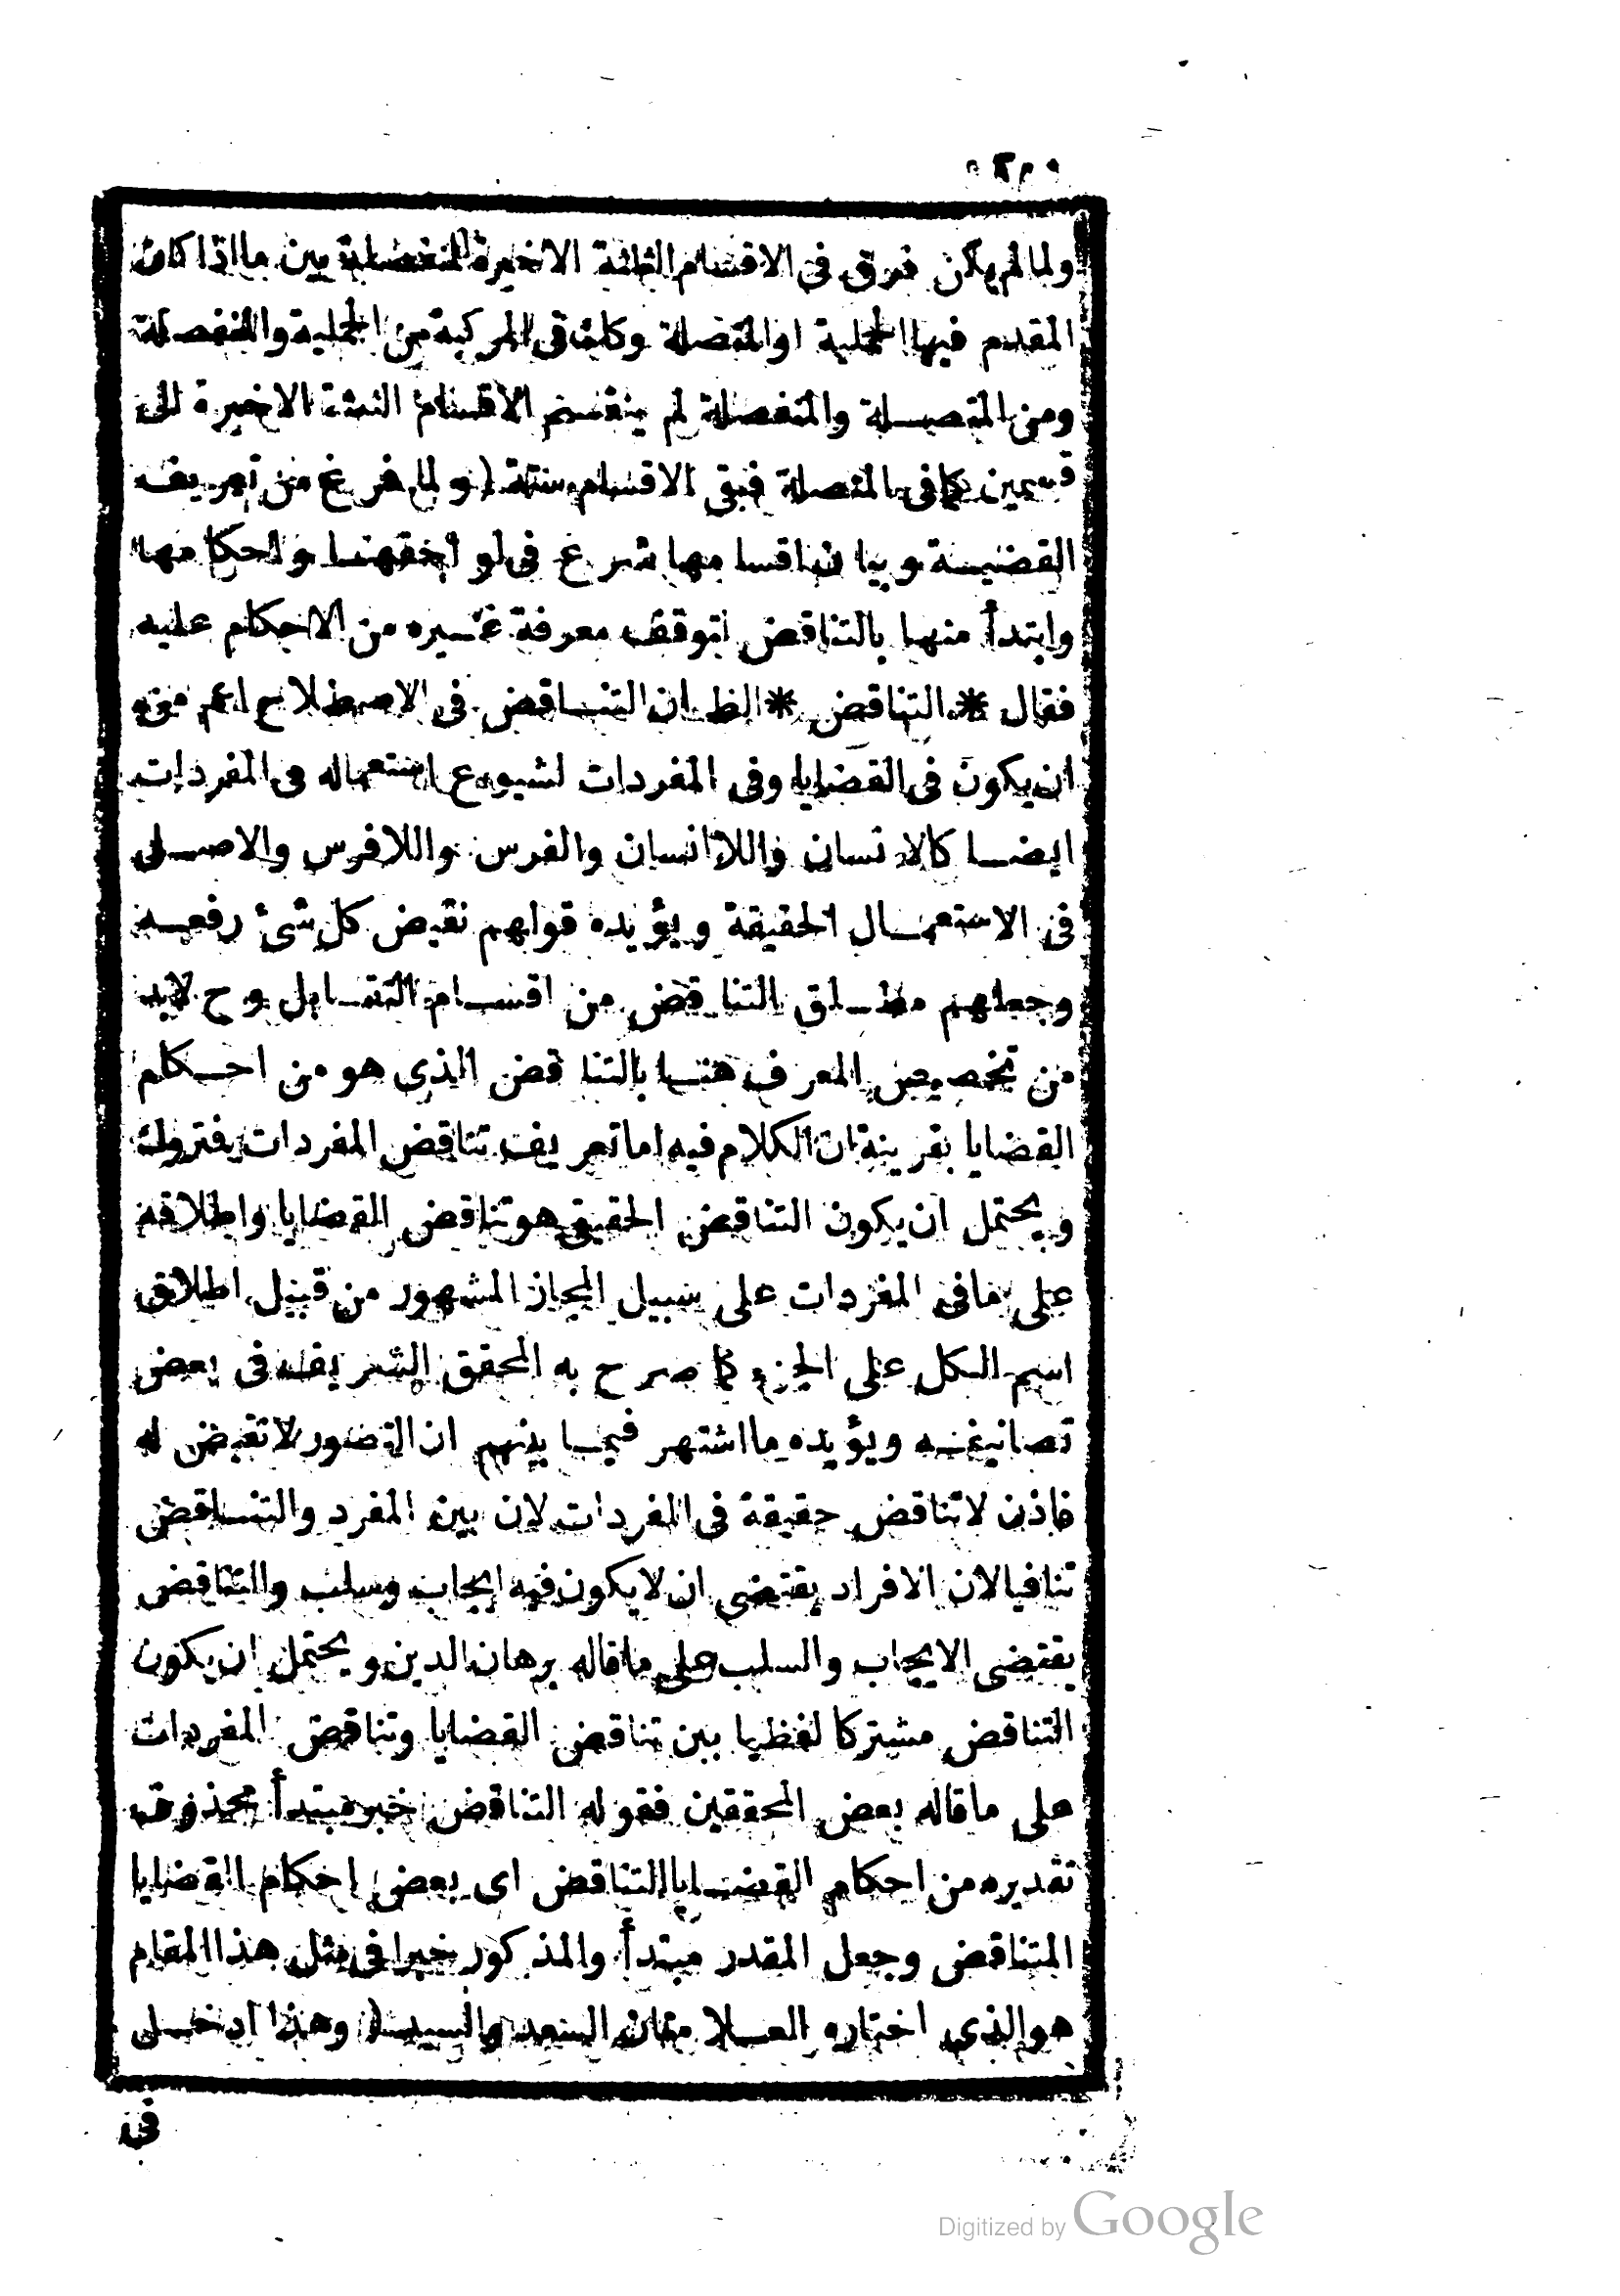 ولما لم يكن فرق فى الاقسام الثلثة الاخيرة المنفصلة بين ما اذا كان
المقدم فيها الحملية او المتصلة وكذا فى المركبة من الحملية والمنفصلة
ومن المتصلة والمنفصلة لم ينقسم الاقسام الثلثة الاخيرة الى
قسمين كما فى المتصلة فبقى الاقسام ستة ( ولما فرغ من تعريف
القضية وبيان اقسامها شرع فى لواحقها واحكامها
وابتدأ منها بالتناقض لتوقف معرفة غيره من الاحكام عليه
فقال * التناقض * الظ ان التناقض فى الاصطلاح اعم من
ان يكون فى القضايا وفى المفردات لشيوع استعماله فى المفردات
ايضا كالانسان واللاانسان والفرس واللافرس والاصلى
فى الاستعمال الحقيقة ويؤيده قولهم نقيض كل شئ رفعه
وجعلهم مطلق التناقض من اقسام التقابل وح لابد
من تخصيص المعرف هنا بالتناقض الذى هو من احكام
القضايا بقرينة ان الكلام فيه اما تعريف تناقض المفردات فمتروك
ويحتمل ان يكون التناقض الحقيقى هو تناقض القضايا واطلاقه
على ما فى المفردات على سبيل المجاز المشهور من قبيل اطلاق
اسم الكل على الجزء كما صرح به المحقق الشريف فى بعض
تصانيفه ويؤيده ما اشتهر فيما بينهم ان التصور لا نقيض له
فاذن لا تناقض حقيقة فى المفردات لان بين المفرد والتناقض
تنافيا لان الافراد يقتضى ان لا يكون فيه ايجاب وسلب والتناقض
يقتضى الايجاب والسلب على ما قاله برهان الدين ويحتمل ان يكون
التناقض مشتركا لفظيا بين تناقض القضايا وتناقض المفردات
على ما قاله بعض المحققين فقوله التناقض خبر مبتدأ محذوف
تقديره من احكام القضايا التناقض اى بعض احكام القضايا
المتناقض وجعل المقدر مبتدأ والمذكور خبرا فى مثل هذا المقام
هو الذى اختاره العلامتان السعد والسيد ( وهذا ادخل
فى
Digitized by Google